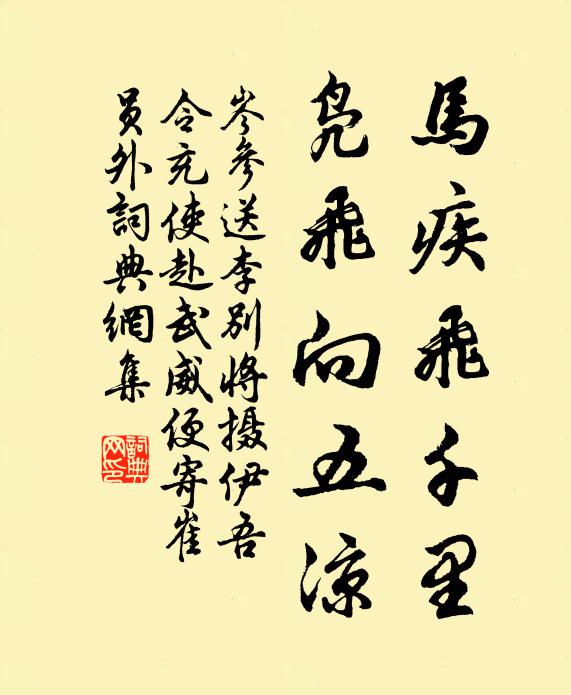 馬疾飛千里
鳧飛向五凉
岑參送李別將摄伊吾
令充使赴武威便寄崔
員外詞典網集
詞典网印